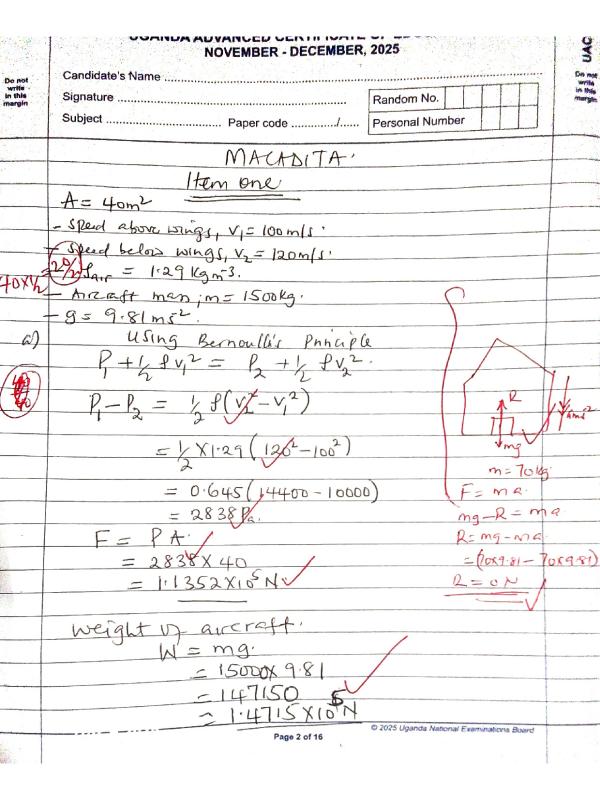 UGANDA ADVANCED CERTIFICATE OF
NOVEMBER - DECEMBER, 2025
UAC
Do not
write
in this
margin
Do not
write
in this
margin
Candidate's Name
Signature
Random No.
Subject Paper code ....../......
Personal Number
MACADITA.
Item one
A = 40m²
- Speed above wings, V₁ = 100m/s.
- Speed below wings, V₂ = 120m/s.
20/2
- ρair = 1.29 kgm⁻³.
40x½
- Aircraft mass, m = 1500kg.
- g = 9.81ms⁻².
a) Using Bernoulli's Principle
P₁ + ½ρv₁² = P₂ + ½ρv₂².
P₁ - P₂ = ½ρ(v₂² - v₁²)
= ½ x 1.29 (120² - 100²)
= 0.645 (14400 - 10000)
= 2838Pa.
F = PA.
= 2838 x 40
= 1.1352 x 10⁵ N
Weight of aircraft.
W = mg.
= 15000 x 9.81
= 147150
= 1.4715 x 10⁵ N
R
mg
m = 70kg
F = ma.
mg - R = ma
R = mg - ma.
= (70x9.81 - 70x9.81)
R = 0N
© 2025 Uganda National Examinations Board
Page 2 of 16